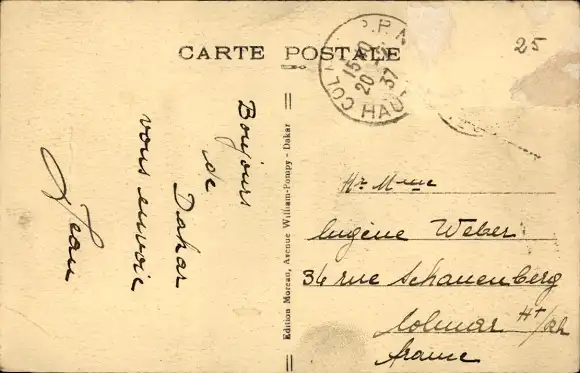 CARTE POSTALE
25
P.P.
15 40
20
37
COL
HAU
Bonjours
de
Dakar
vous envoie
Jean
Edition Moreau, Avenue William-Pompy - Dakar
Mr Mme
Eugène Weber
36 rue Schauenberg
Colmar Ht/Rh
France